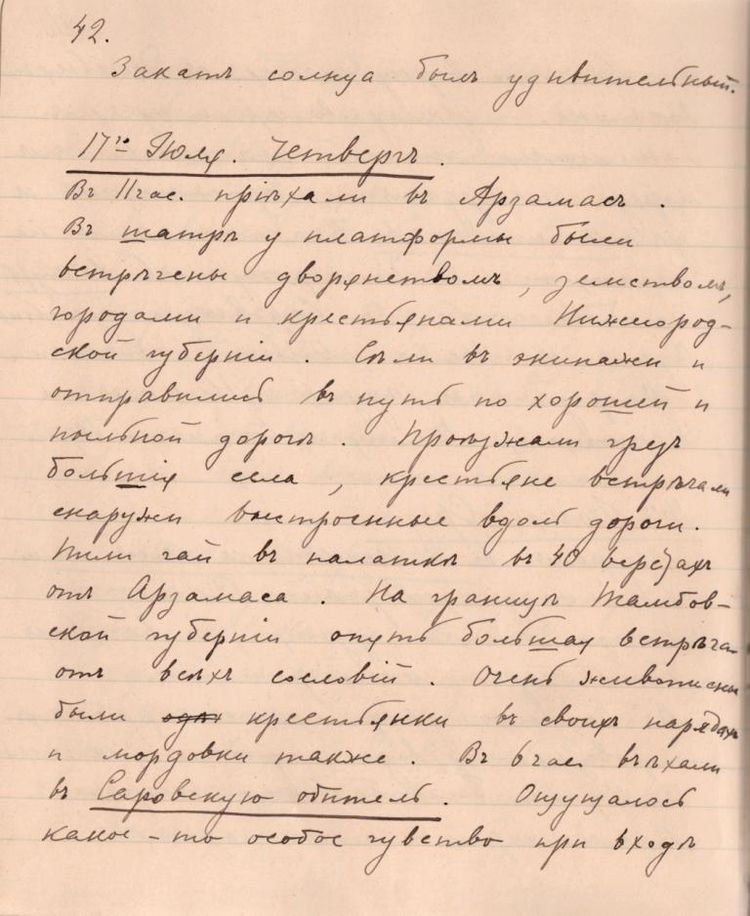 42.
Закатъ солнца былъ удивительный.
17го Июля. Четвергъ.
Въ 11 час. пріѣхали въ Арзамасъ.
Въ шатрѣ у платформы были
встрѣчены дворянствомъ, земствомъ,
городами и крестьянами Нижегород-
ской губерніи. Сѣли въ экипажи и
отправились въ путь по хорошей и
пыльной дорогѣ. Проѣзжали чрезъ
большія села, крестьяне встрѣчали
снаружи выстроенные вдоль дороги.
Пили чай въ палаткѣ въ 40 верстахъ
отъ Арзамаса. На границѣ Тамбов-
ской губерніи опять большая встрѣча
отъ всѣхъ сословій. Очень живописны
были крестьянки въ своихъ нарядахъ
и мордовки также. Въ 6 час въѣхали
въ Саровскую обитель. Ощущалось
какое-то особое чувство при входѣ